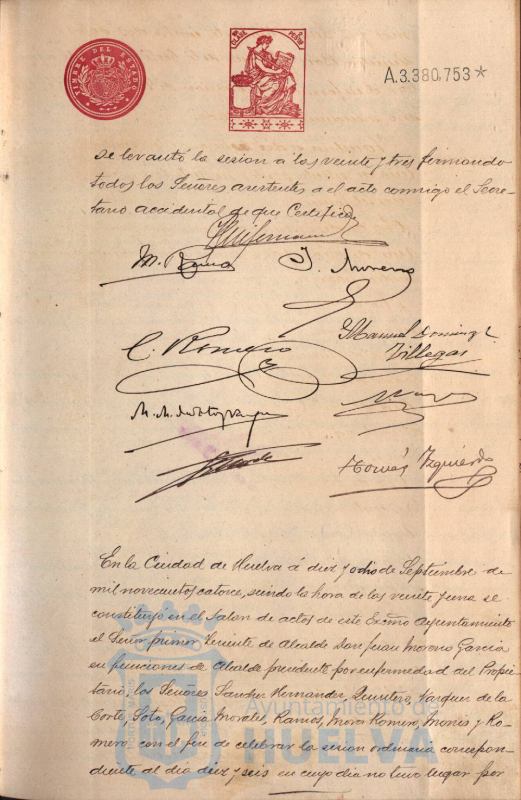 TIMBRE DEL ESTADO
A.3.380,753*
se levantó la sesion a las veinte y tres firmando
todos los Señores asistentes a el acto conmigo el Secre-
tario accidental de que Certifico
J. Moreno
C. Romero
Manuel Doming
Villegas
Tomás Izquierdo
En la Ciudad de Huelva á diez y ocho de Septiembre de
mil novecientos catorce, siendo la hora de las veinte y una se
constituyó en el Salon de actos de este Excmo Ayuntamiento
el Señor primer Teniente de Alcalde Don Juan Moreno Garcia
en funciones de Alcalde presidente por enfermedad del Propie-
tario, los Señores Sanchez Hernandez, Quintero, Vazquez de la
Corte, Soto, Garcia Morales, Ramos, Mora Romero, Monis y Ro-
mero, con el fin de celebrar la sesion ordinaria correspon-
diente al dia diez y seis en cuyo dia no tuvo lugar por
Ayuntamiento de
HUELVA